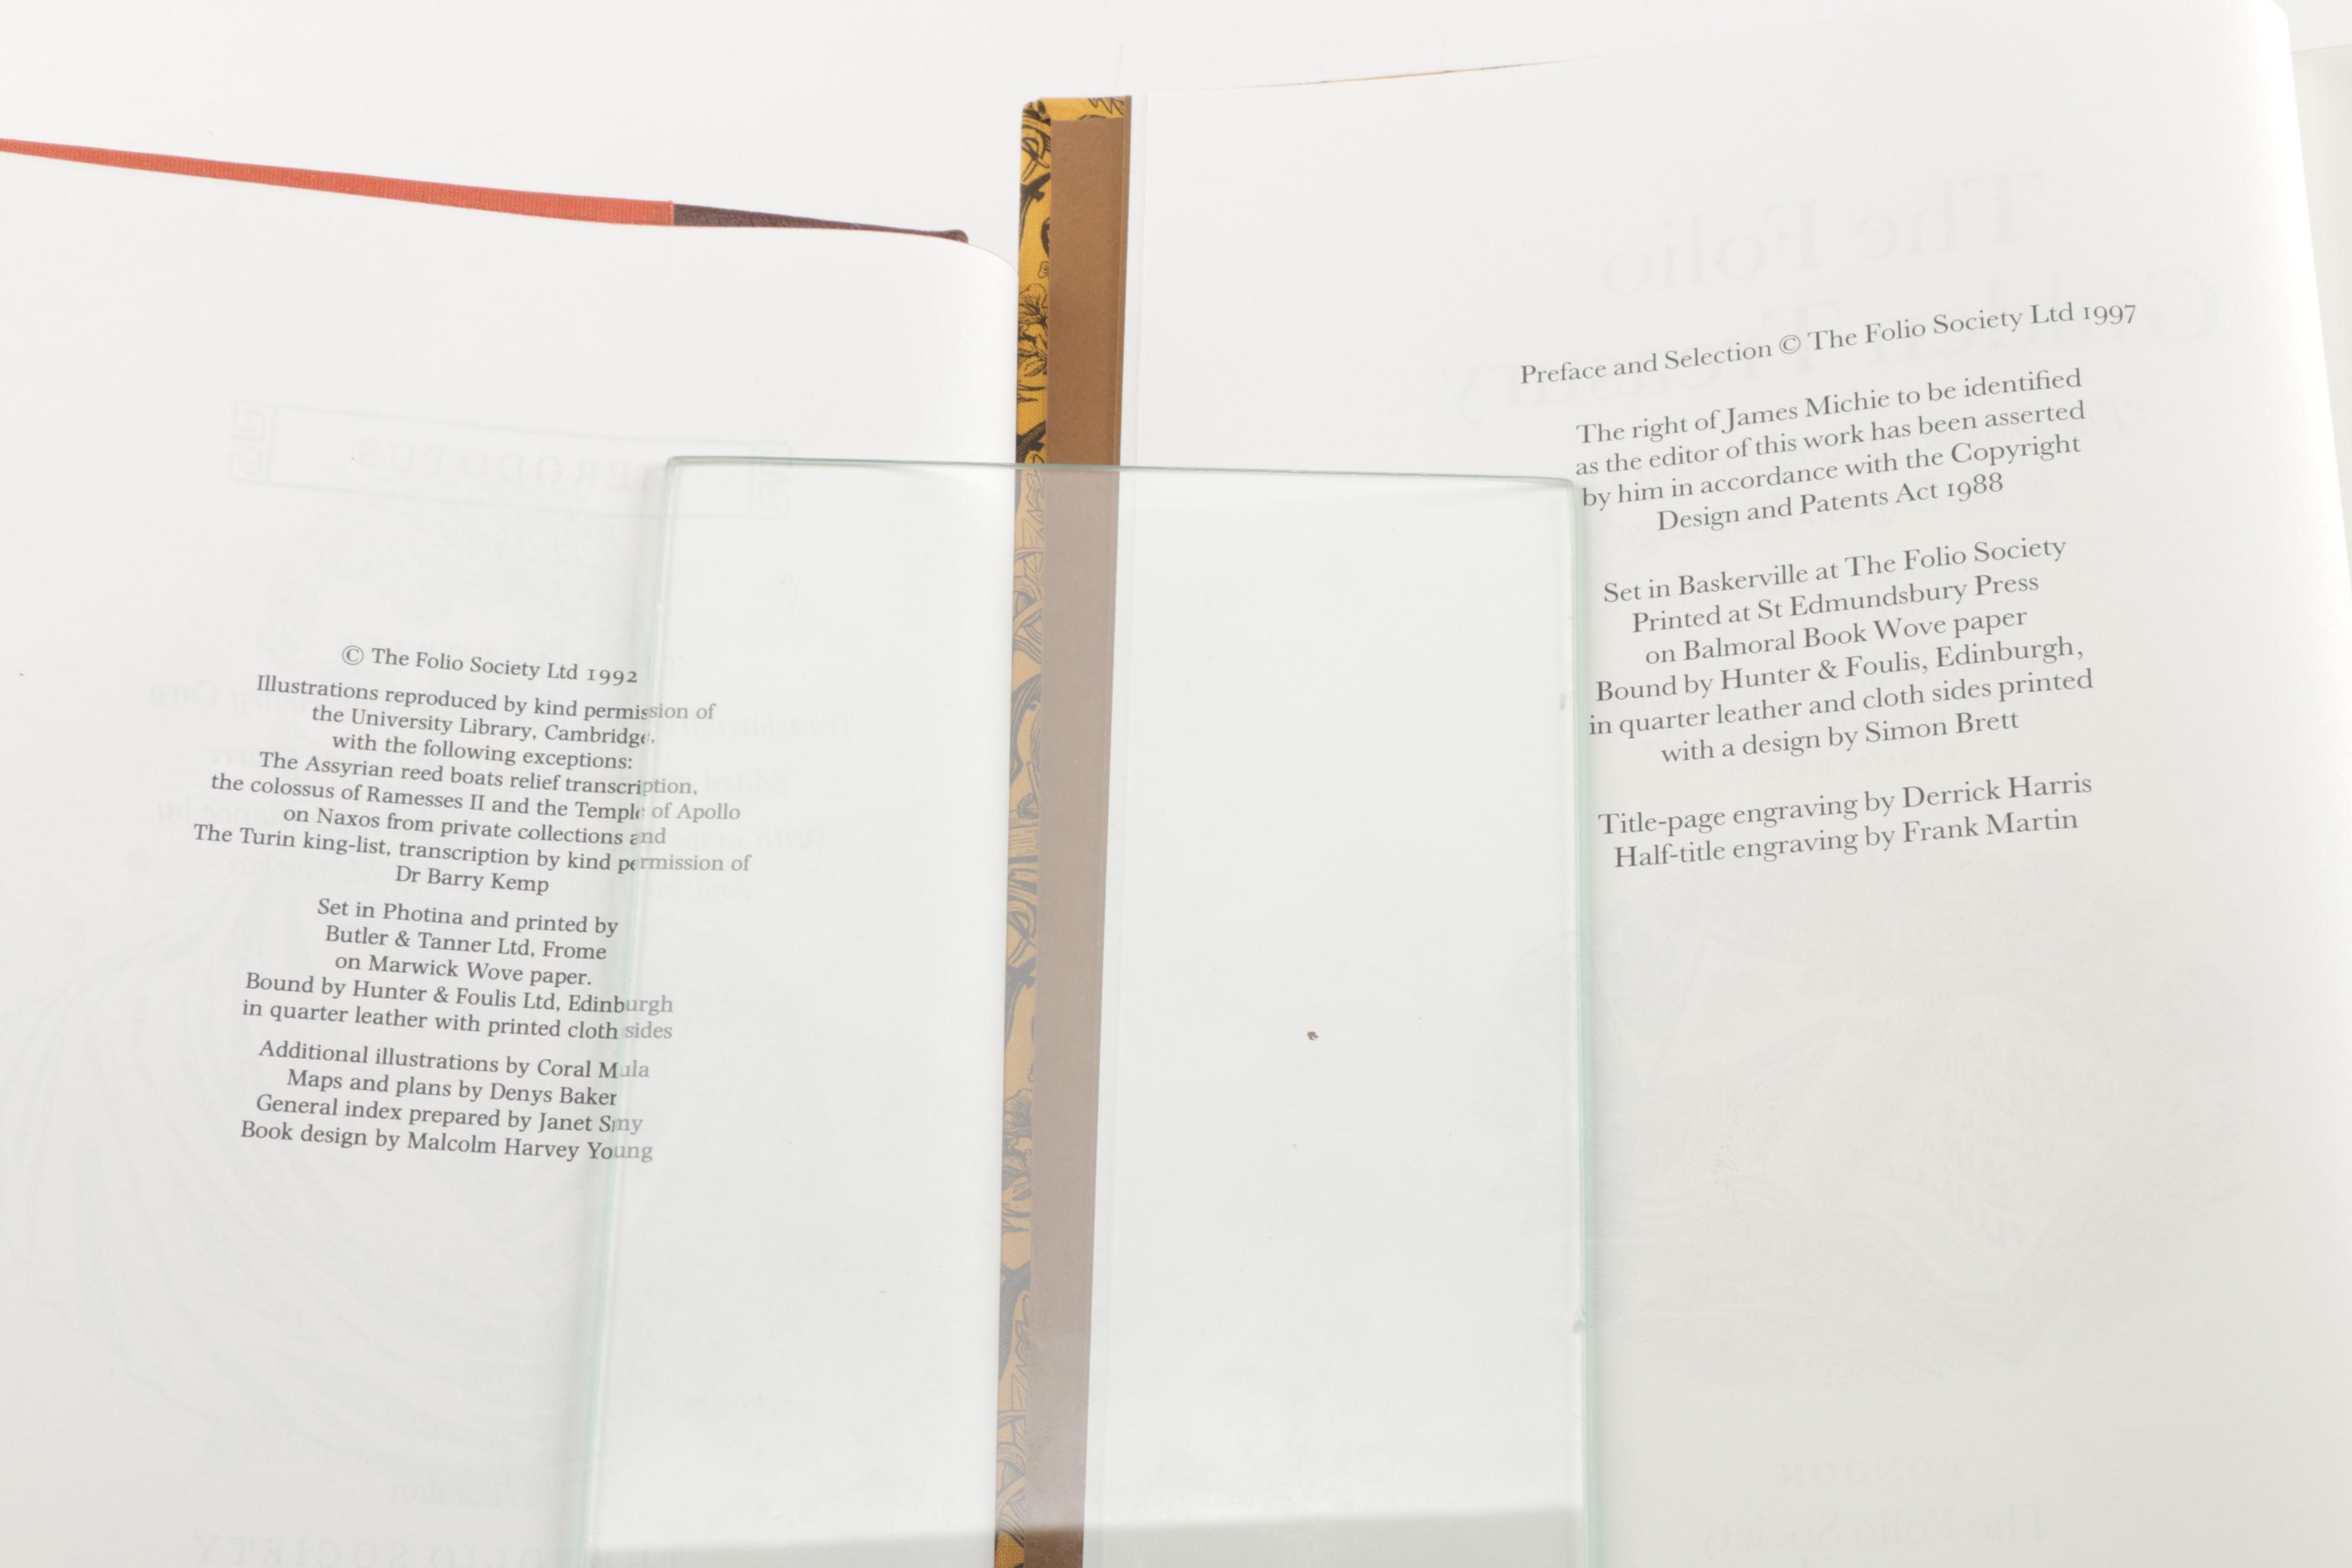 © The Folio Society Ltd 1992
Illustrations reproduced by kind permission of
the University Library, Cambridge,
with the following exceptions:
The Assyrian reed boats relief transcription,
the colossus of Ramesses II and the Temple of Apollo
on Naxos from private collections and
The Turin king-list, transcription by kind permission of
Dr Barry Kemp
Set in Photina and printed by
Butler & Tanner Ltd, Frome
on Marwick Wove paper.
Bound by Hunter & Foulis Ltd, Edinburgh
in quarter leather with printed cloth sides
Additional illustrations by Coral Mula
Maps and plans by Denys Baker
General index prepared by Janet Smy
Book design by Malcolm Harvey Young
Preface and Selection © The Folio Society Ltd 1997
The right of James Michie to be identified
as the editor of this work has been asserted
by him in accordance with the Copyright
Design and Patents Act 1988
Set in Baskerville at The Folio Society
Printed at St Edmundsbury Press
on Balmoral Book Wove paper
Bound by Hunter & Foulis, Edinburgh,
in quarter leather and cloth sides printed
with a design by Simon Brett
Title-page engraving by Derrick Harris
Half-title engraving by Frank Martin